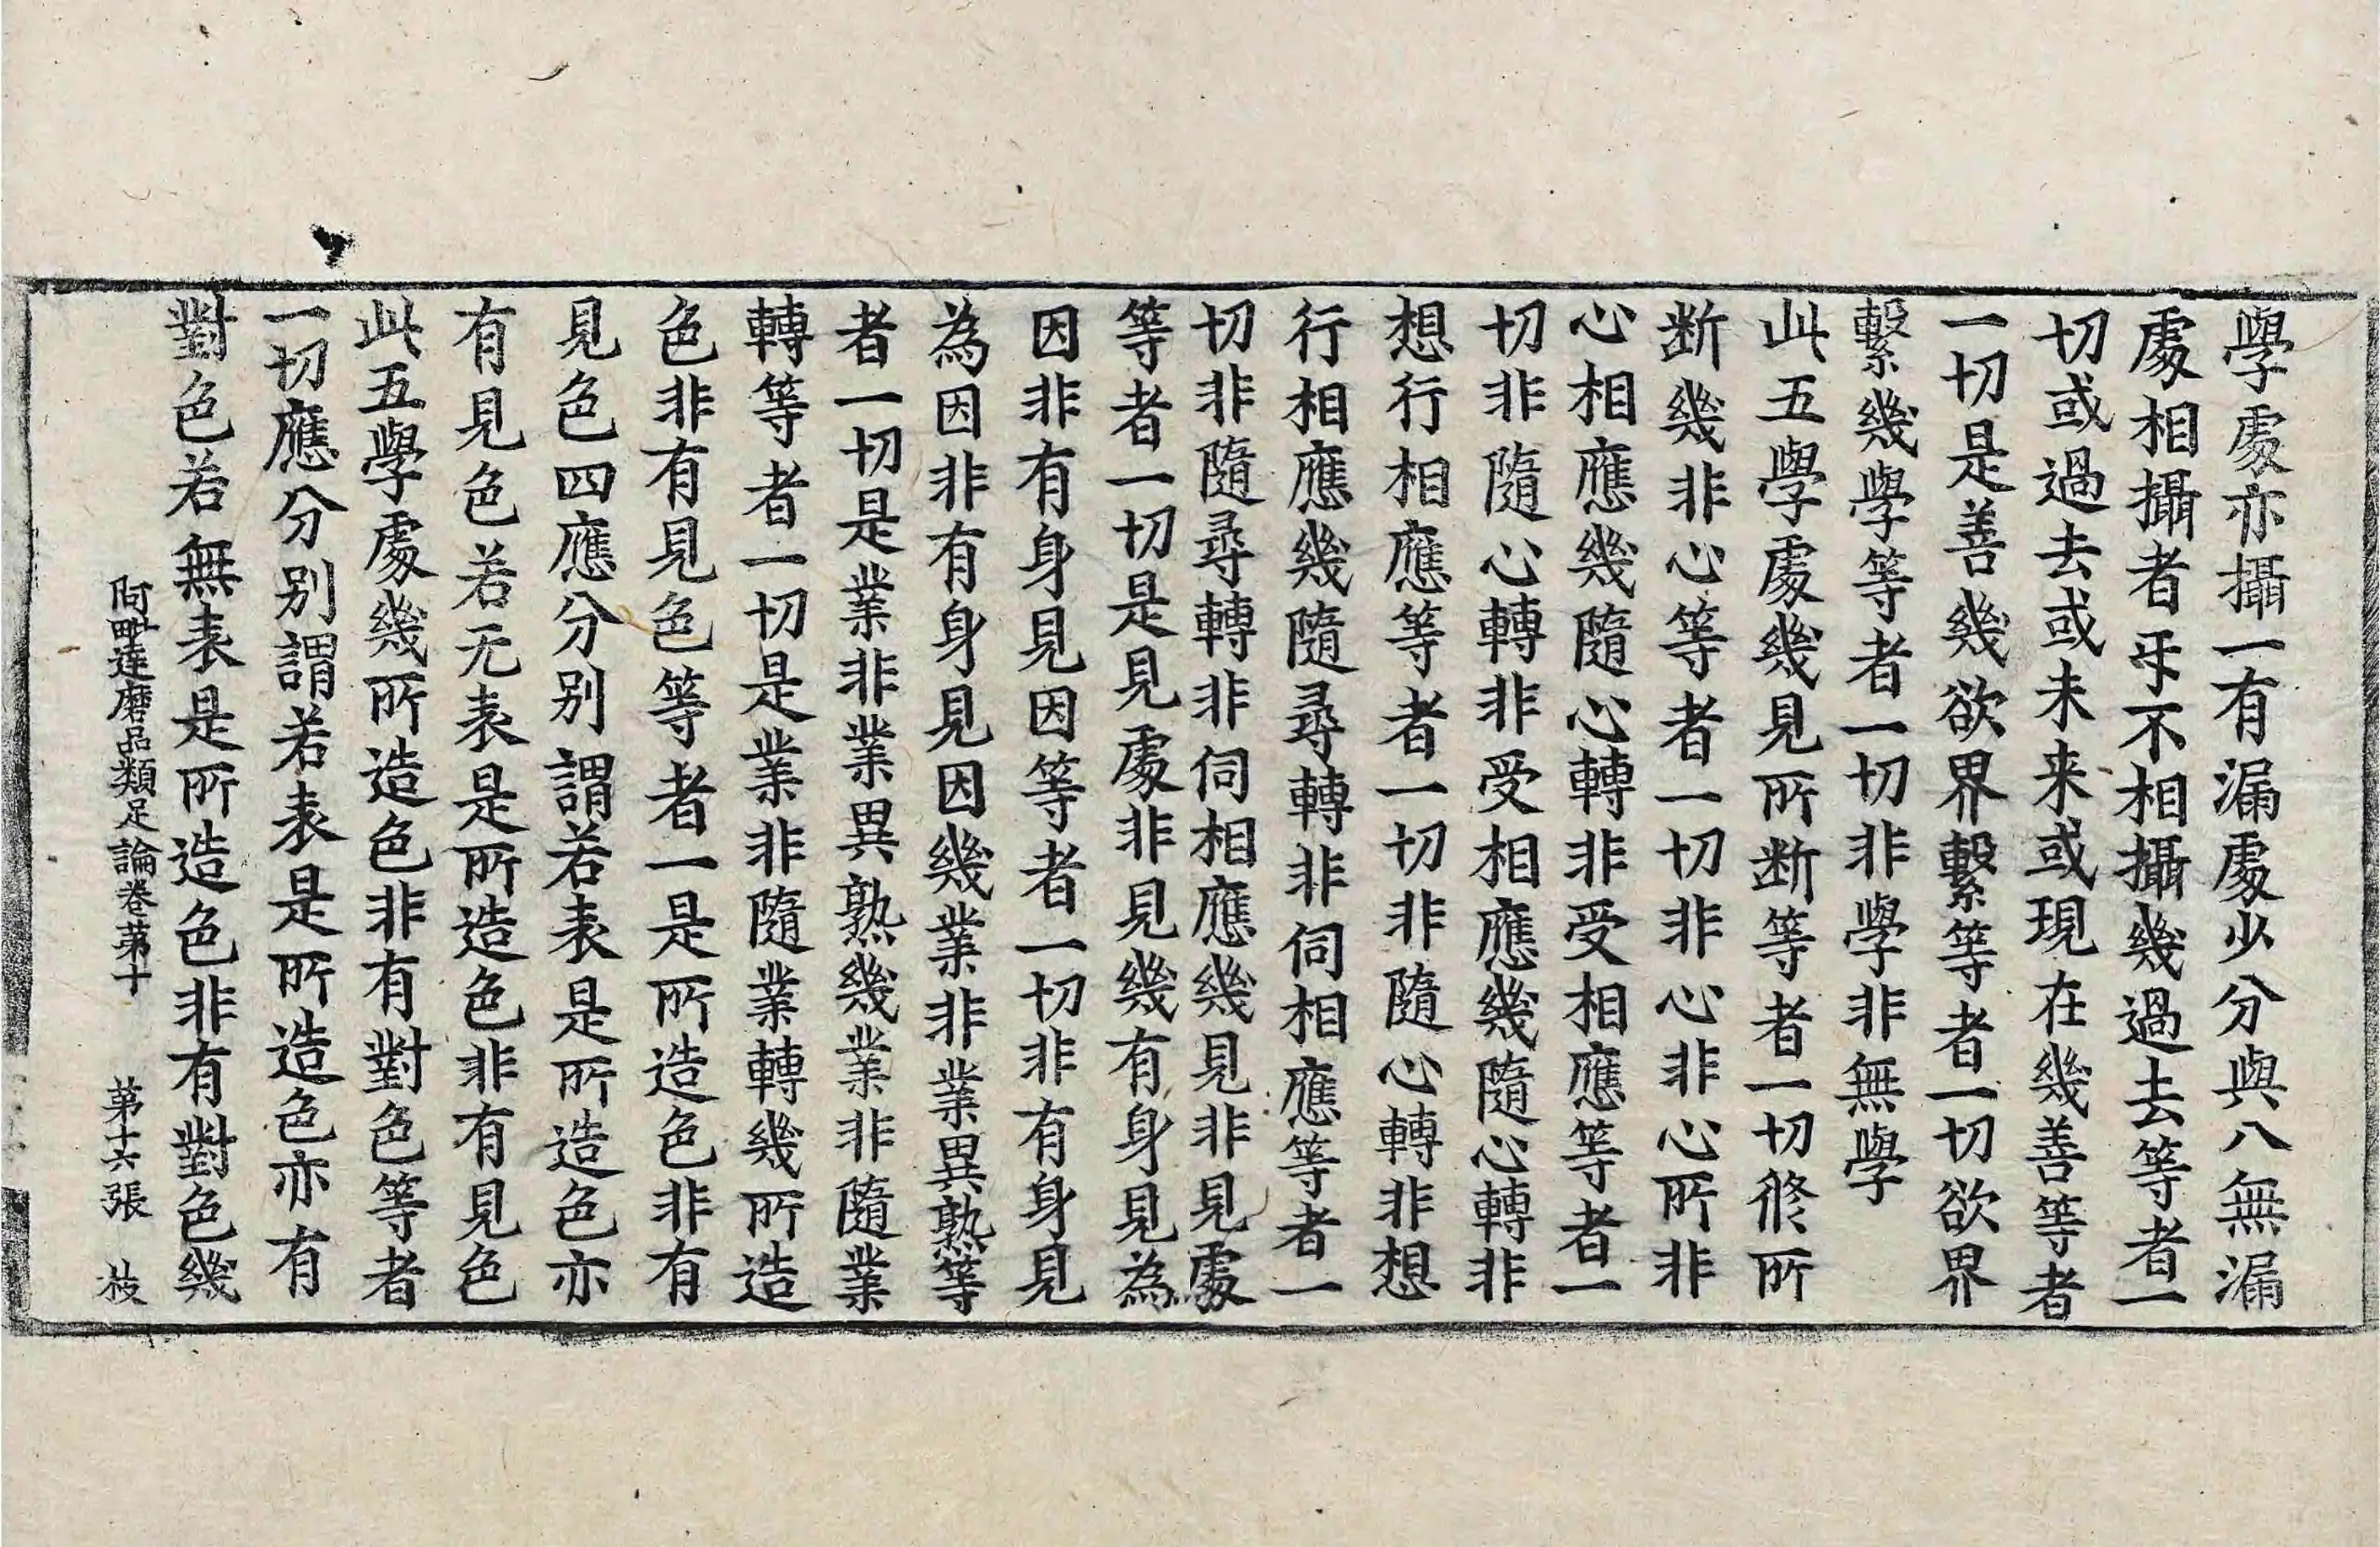 學處亦攝一有漏處少分與八無漏
處相攝者㸦不相攝幾過去等者一
切或過去或未来或現在幾善等者
一切是善幾欲界繫等者一切欲界
繫幾學等者一切非學非無學
此五學處幾見所断等者一切修所
断幾非心等者一切非心非心所非
心相應幾隨心轉非受相應等者一
切非隨心轉非受相應幾隨心轉非
想行相應等者一切非隨心轉非想
行相應幾隨尋轉非伺相應等者一
切非隨尋轉非伺相應幾見非見處
等者一切是見處非見幾有身見為
因非有身見因等者一切非有身見
為因非有身見因幾業非業異熟等
者一切是業非業異熟幾業非隨業
轉等者一切是業非隨業轉幾所造
色非有見色等者一是所造色非有
見色四應分别謂若表是所造色亦
有見色若无表是所造色非有見色
此五學處幾所造色非有對色等者
一切應分别謂若表是所造色亦有
對色若無表是所造色非有對色幾
阿毗達磨品類足論卷第十 第十六張 枝